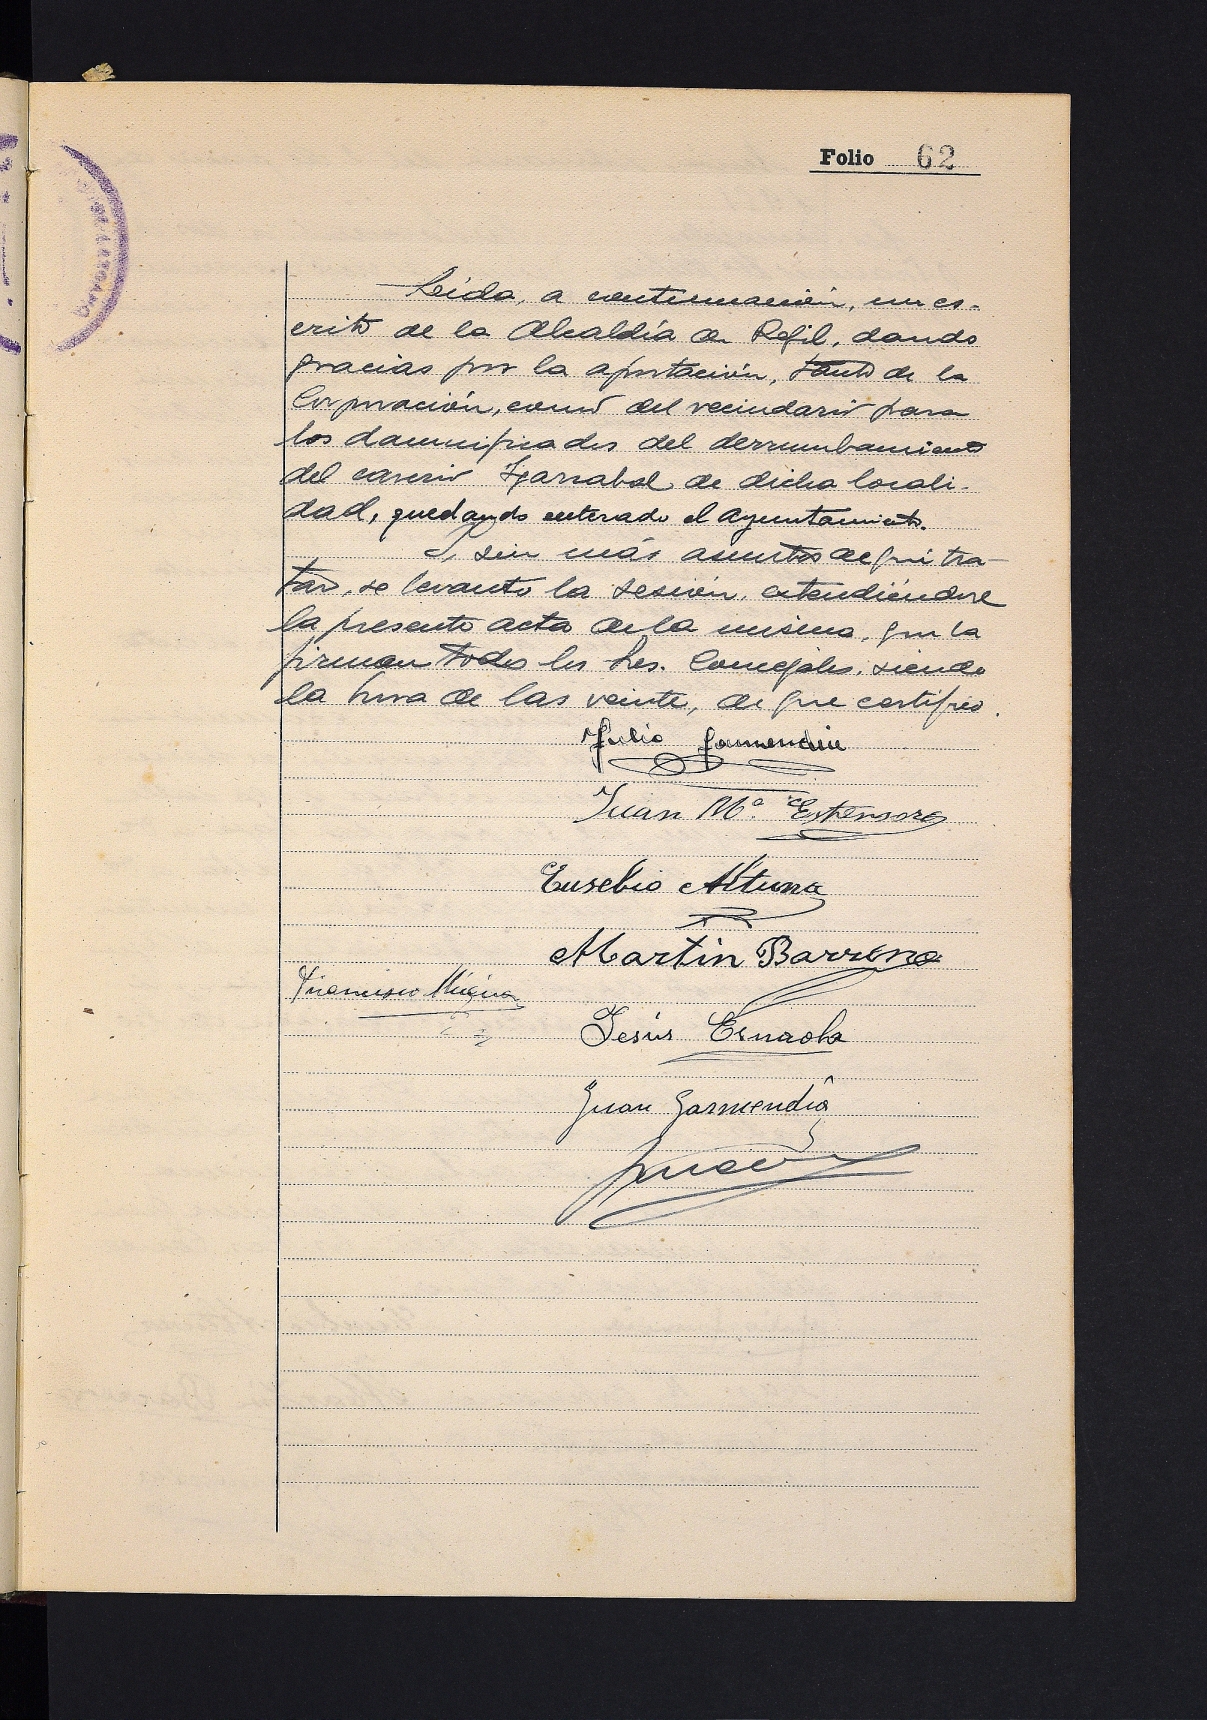 Folio 62
Leida, a continuación, un es-
crito de la Alcaldía de Régil, dando
gracias por la aportación, tanto de la
Corporación, como del vecindario para
los damnificados del derrumbamiento
del caserio de dicha locali-
dad, quedando enterado el Ayuntamiento.
Y, sin más asuntos de qué tra-
tar, se levantó la sesión, extendiéndose
la presente acta de la misma, que la
firman todos los Sres. Concejales, siendo
la hora de las veinte, de que certifico.
Julio Garmendia
Juan Mª. Estensoro
Eusebio Altuna
Martin Barrena
Francisco Múgica
Jesús Ernaola
Juan Garmendia